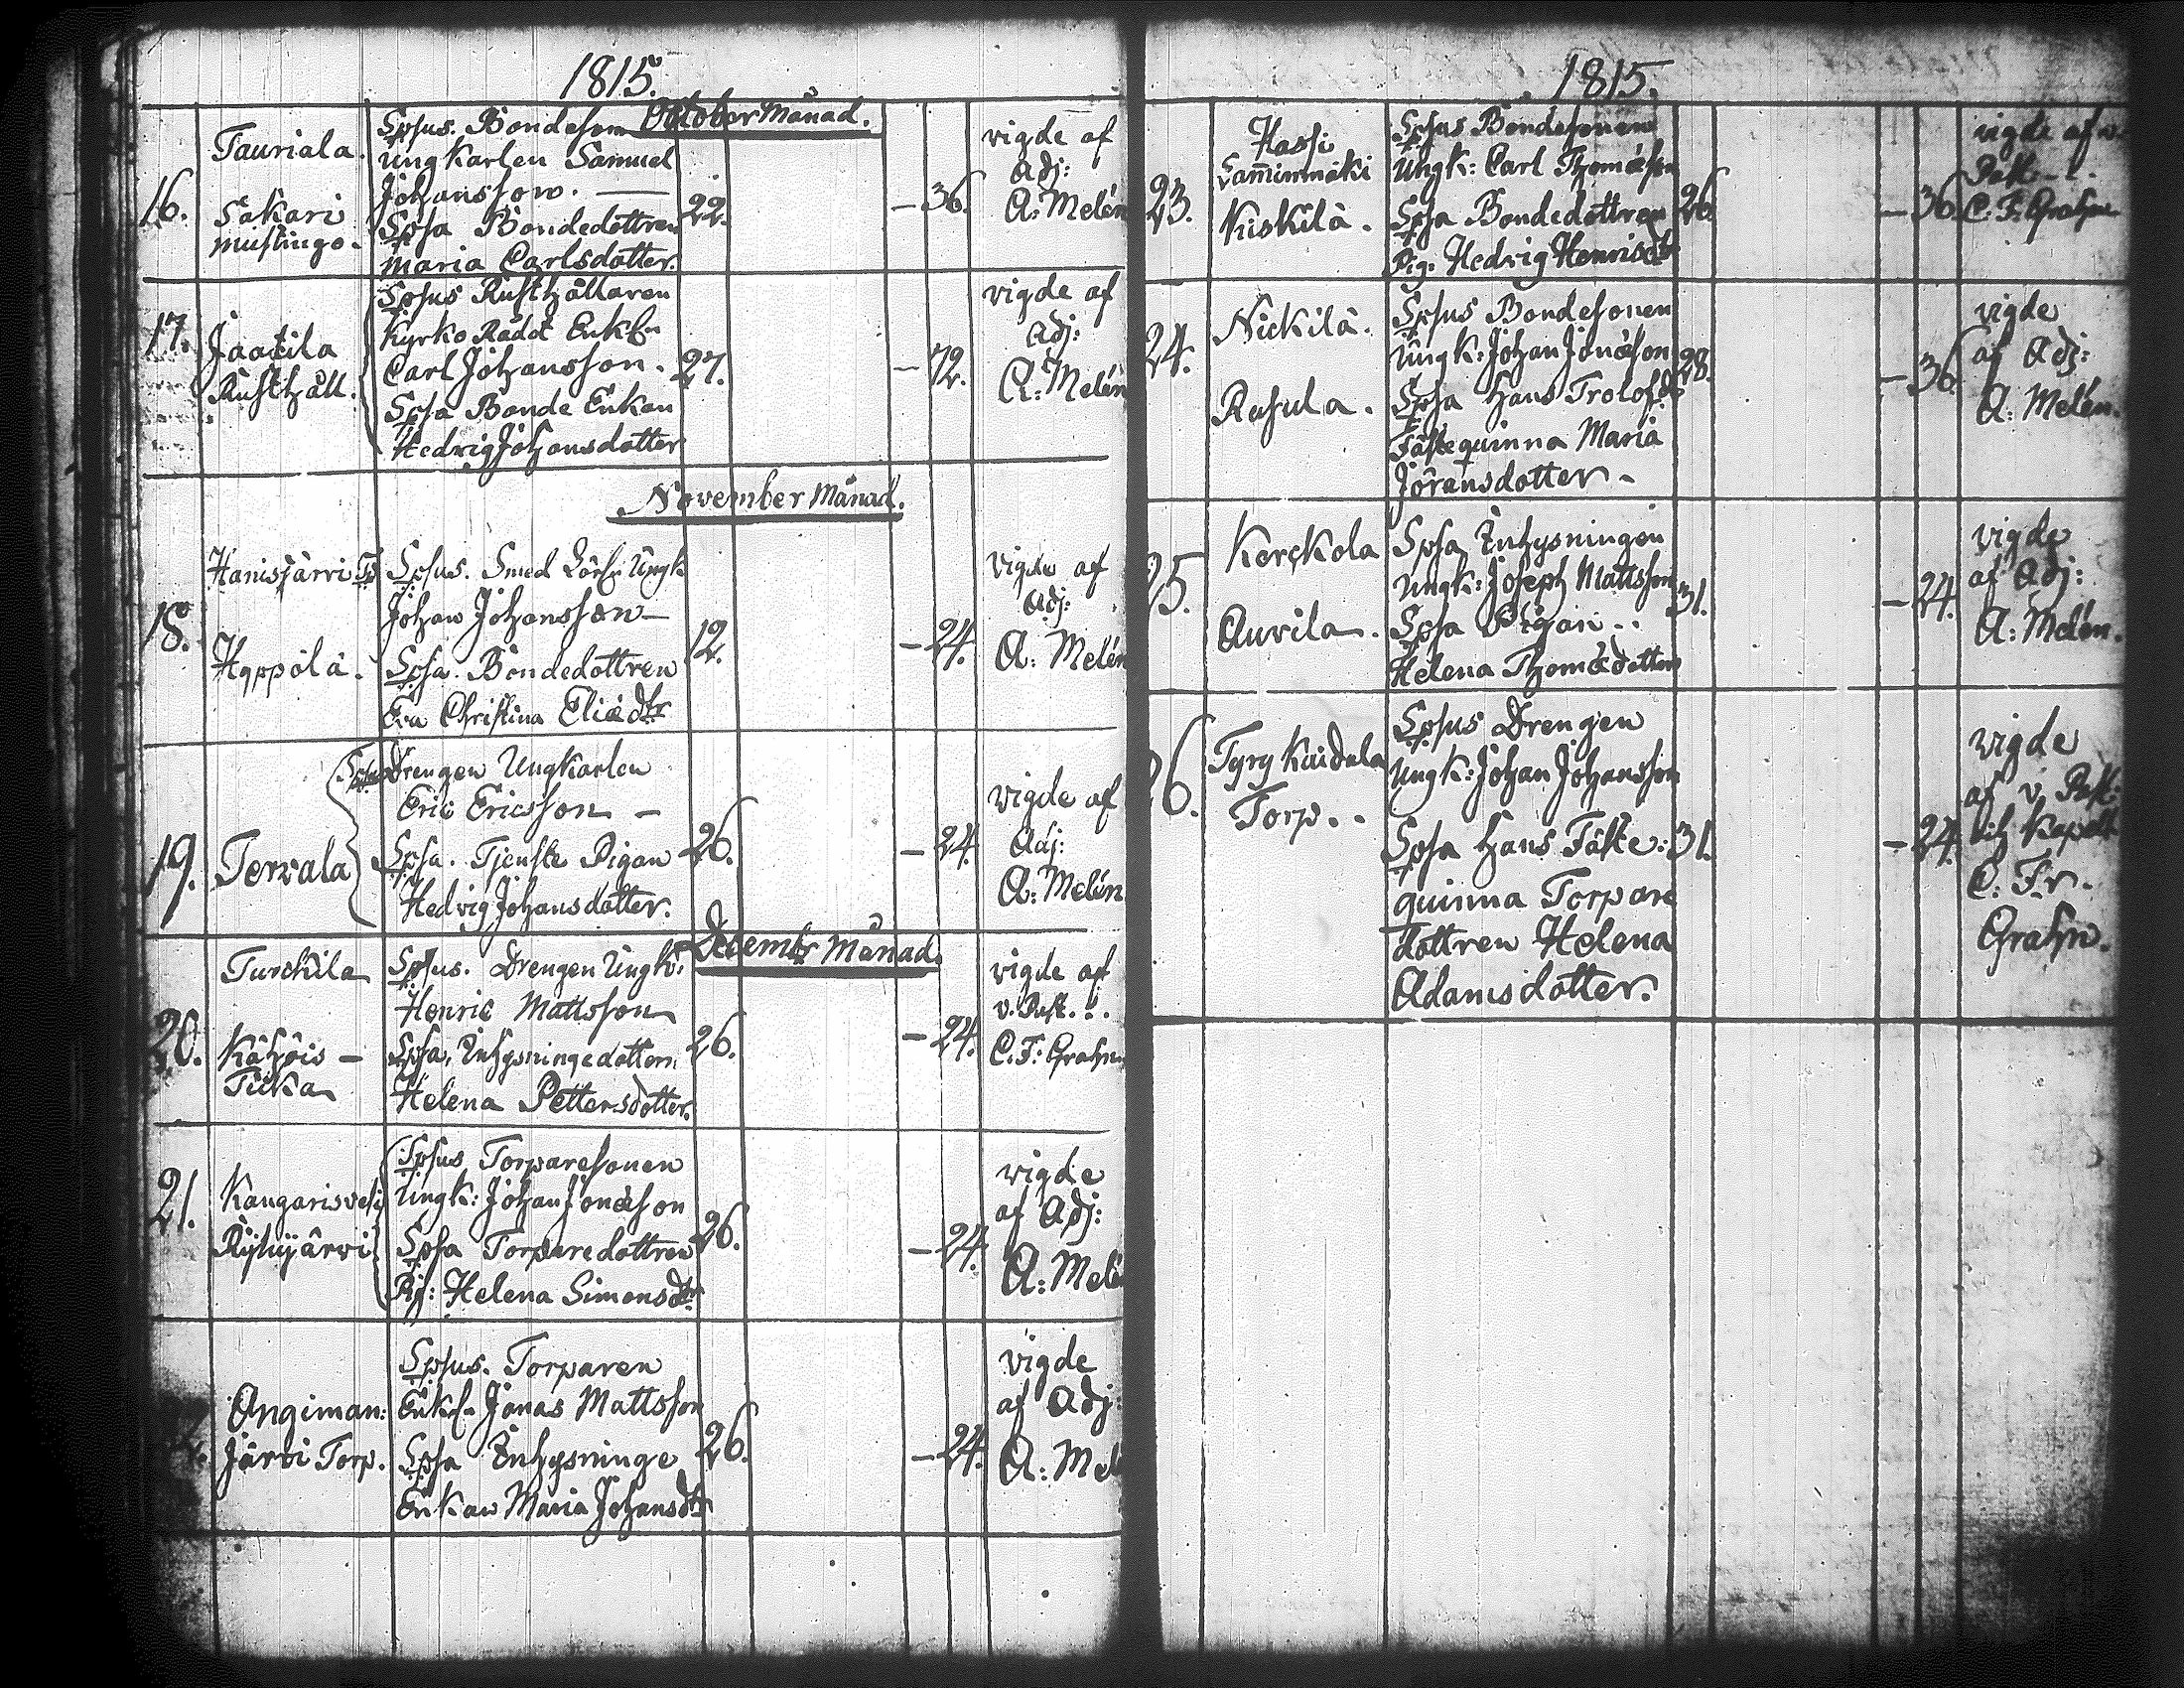 1815.
October Månad.
16.
Tauriala.
Sakari
mustingo.
Spsus. Bondeson
ungkarlen Samuel
Johansson.
Spsa Bondedottren
Maria Carlsdotter.
22.
— 36.
vigde af
Adj:
A: Melén
17.
Jaatila
Rusthåll.
Spsus Rusthållaren
Kyrko Rådet Enkl.
Carl Johansson.
Spsa Bonde Enkan
Hedvig Johansdotter
27.
— 72.
vigde af
Adj:
A: Melén
November Månad.
18.
Hanisjärvi
Hyppölä.
Spsus. Smed Ungk
Johan Johansson —
Spsa. Bondedottren
Eva Christina Eliædtr
12.
— 24.
vigde af
Adj:
A: Melén
19.
Tervala
Spsus Drengen Ungkarlen
Eric Ericsson —
Spsa. Tjenste Pigan
Hedvig Johansdotter.
26.
— 24.
vigde af
Adj:
A: Melén
Decembr Månad.
20.
Turckila
Kåhöis —
Ticka
Spsus. Drengen Ungk:
Henric Mattsson
Spsa. Inhysningedottern
Helena Pettersdotter.
26.
— 24.
vigde af
v. Past. . .
C: F: Grahn
21.
Kangarisvesi
Ryhyjärvi
Spsus Torparesonen
Ungk: Johan Jonæson
Spsa Torparedottren
Pig: Helena Simonsdtr
26.
— 24.
vigde
af Adj:
A: Melé
Angiman:
järvi Torp.
Spsus. Torparen
Enkl. Jonas Mattsson
Spsa Inhysninge
Enkan Maria Johansdtr
26.
— 24.
vigde
af Adj:
A: Mel
1815.
23.
Hassi
Samminmäki
Kiskilä.
Spsus Bondesonen
Ungk: Carl Thomæson
Spsa Bondedottren
Pig: Hedvig Henricsdtr
26.
— 36.
vigde af v.
Past. . .
C. F: Grahn
24.
Nickilä.
Rasula.
Spsus Bondesonen
Ungk: Johan Jonæson
Spsa Hans Trolofde
Fästequinna Maria
Jöransdotter.
28.
— 36.
vigde
af Adj:
A: Melén.
25.
Kerckola
Auvila.
Spsa Inhysningen
Ungk: Joseph Mattsson
Spsa Pigan . .
Helena Thomædotter
31.
— 24.
vigde
af Adj:
A: Melén.
26.
Tyry Kaidala
Torp. .
Spsus Drengen
Ungk: Johan Johansson
Spsa Hans Fäste:
quinna Torpare
dottren Helena
Adamsdotter.
31.
— 24.
vigde
af v. Past:
och Kapell:
C: Fr.
Grahn.